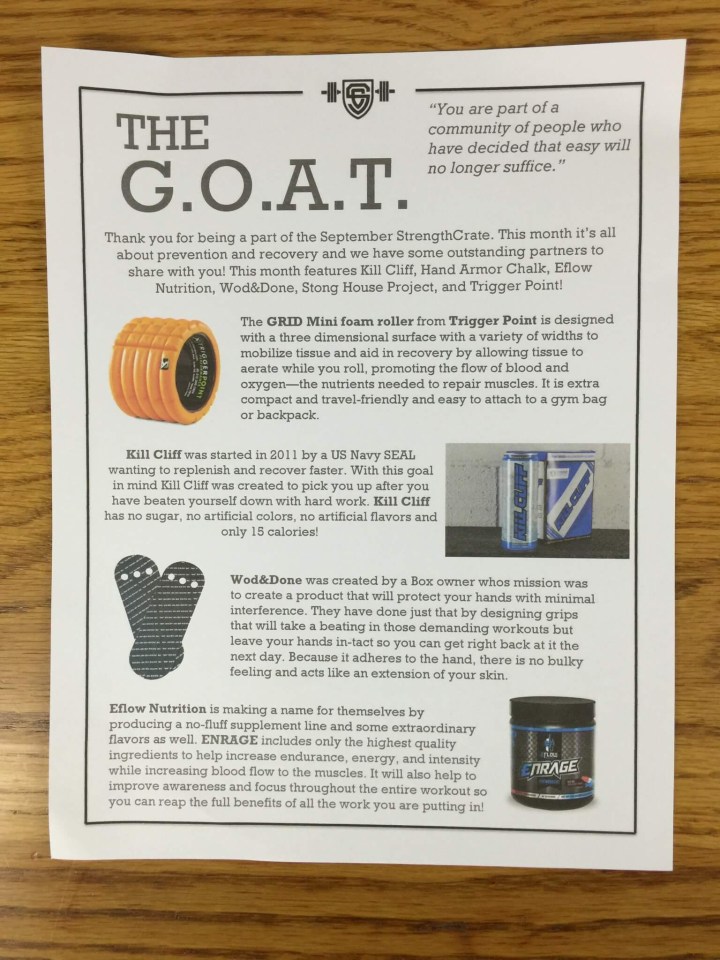 THE
G.O.A.T.
"You are part of a
community of people who
have decided that easy will
no longer suffice."
Thank you for being a part of the September StrengthCrate. This month it's all
about prevention and recovery and we have some outstanding partners to
share with you! This month features Kill Cliff, Hand Armor Chalk, Eflow
Nutrition, Wod&Done, Stong House Project, and Trigger Point!
The GRID Mini foam roller from Trigger Point is designed
with a three dimensional surface with a variety of widths to
mobilize tissue and aid in recovery by allowing tissue to
aerate while you roll, promoting the flow of blood and
oxygen—the nutrients needed to repair muscles. It is extra
compact and travel-friendly and easy to attach to a gym bag
or backpack.
TRIGGERPOINT
Kill Cliff was started in 2011 by a US Navy SEAL
wanting to replenish and recover faster. With this goal
in mind Kill Cliff was created to pick you up after you
have beaten yourself down with hard work. Kill Cliff
has no sugar, no artificial colors, no artificial flavors and
only 15 calories!
KILL CLIFF
KILL CLIFF
Wod&Done was created by a Box owner whos mission was
to create a product that will protect your hands with minimal
interference. They have done just that by designing grips
that will take a beating in those demanding workouts but
leave your hands in-tact so you can get right back at it the
next day. Because it adheres to the hand, there is no bulky
feeling and acts like an extension of your skin.
Eflow Nutrition is making a name for themselves by
producing a no-fluff supplement line and some extraordinary
flavors as well. ENRAGE includes only the highest quality
ingredients to help increase endurance, energy, and intensity
while increasing blood flow to the muscles. It will also help to
improve awareness and focus throughout the entire workout so
you can reap the full benefits of all the work you are putting in!
EFLOW
ENRAGE